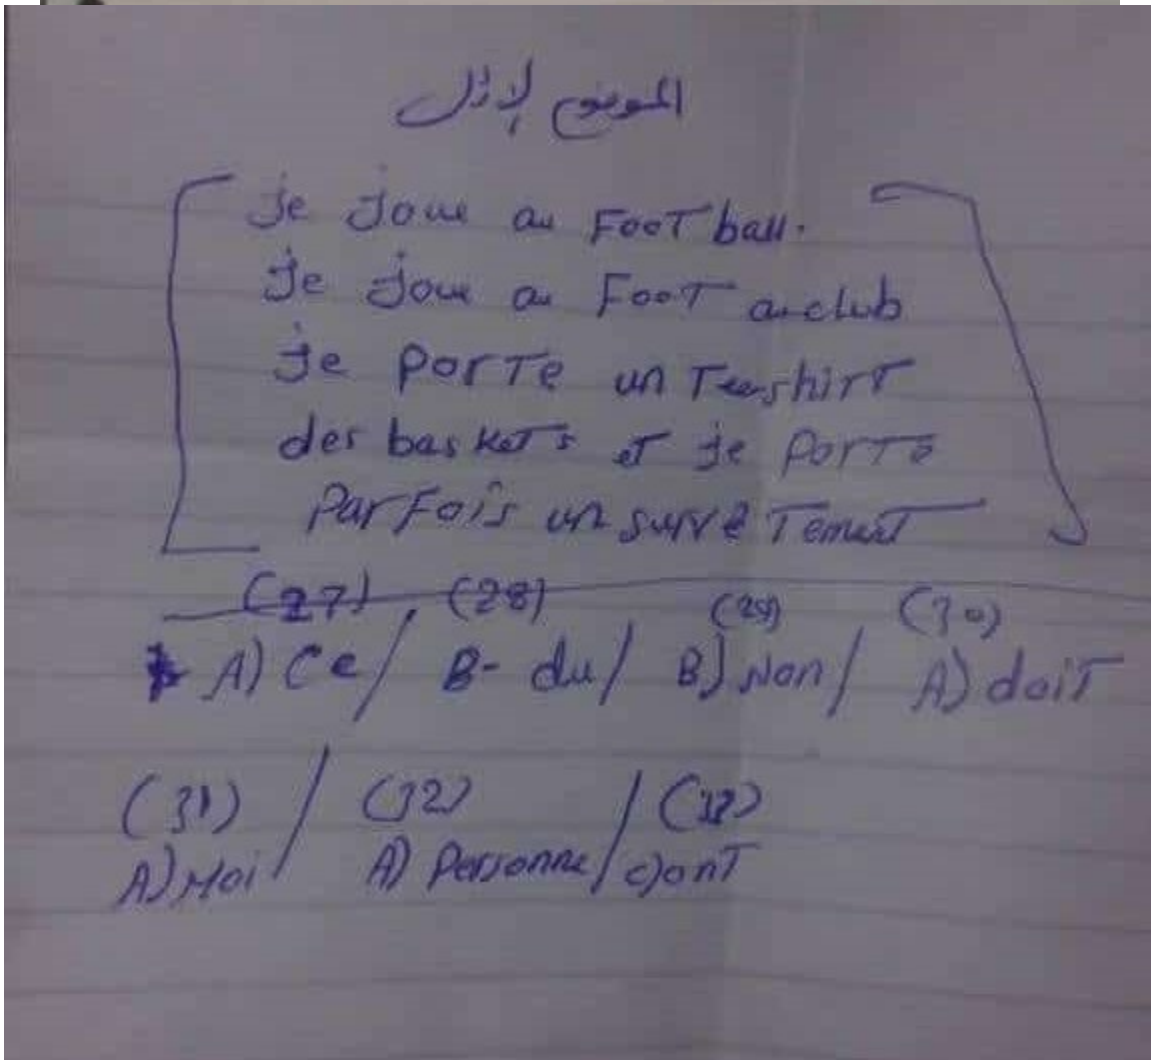 الموضوع الأول
je joue au FooTball.
je joue au FooT au club
je porTe un Tee-shirT
des baskeTs eT je porTe
ParFois un survêTemenT
(27) (28) (29) (30)
A) Ce / B- du / B) Non / A) doiT
(31) / (32) / (33)
A) Moi / A) Personne / c) onT